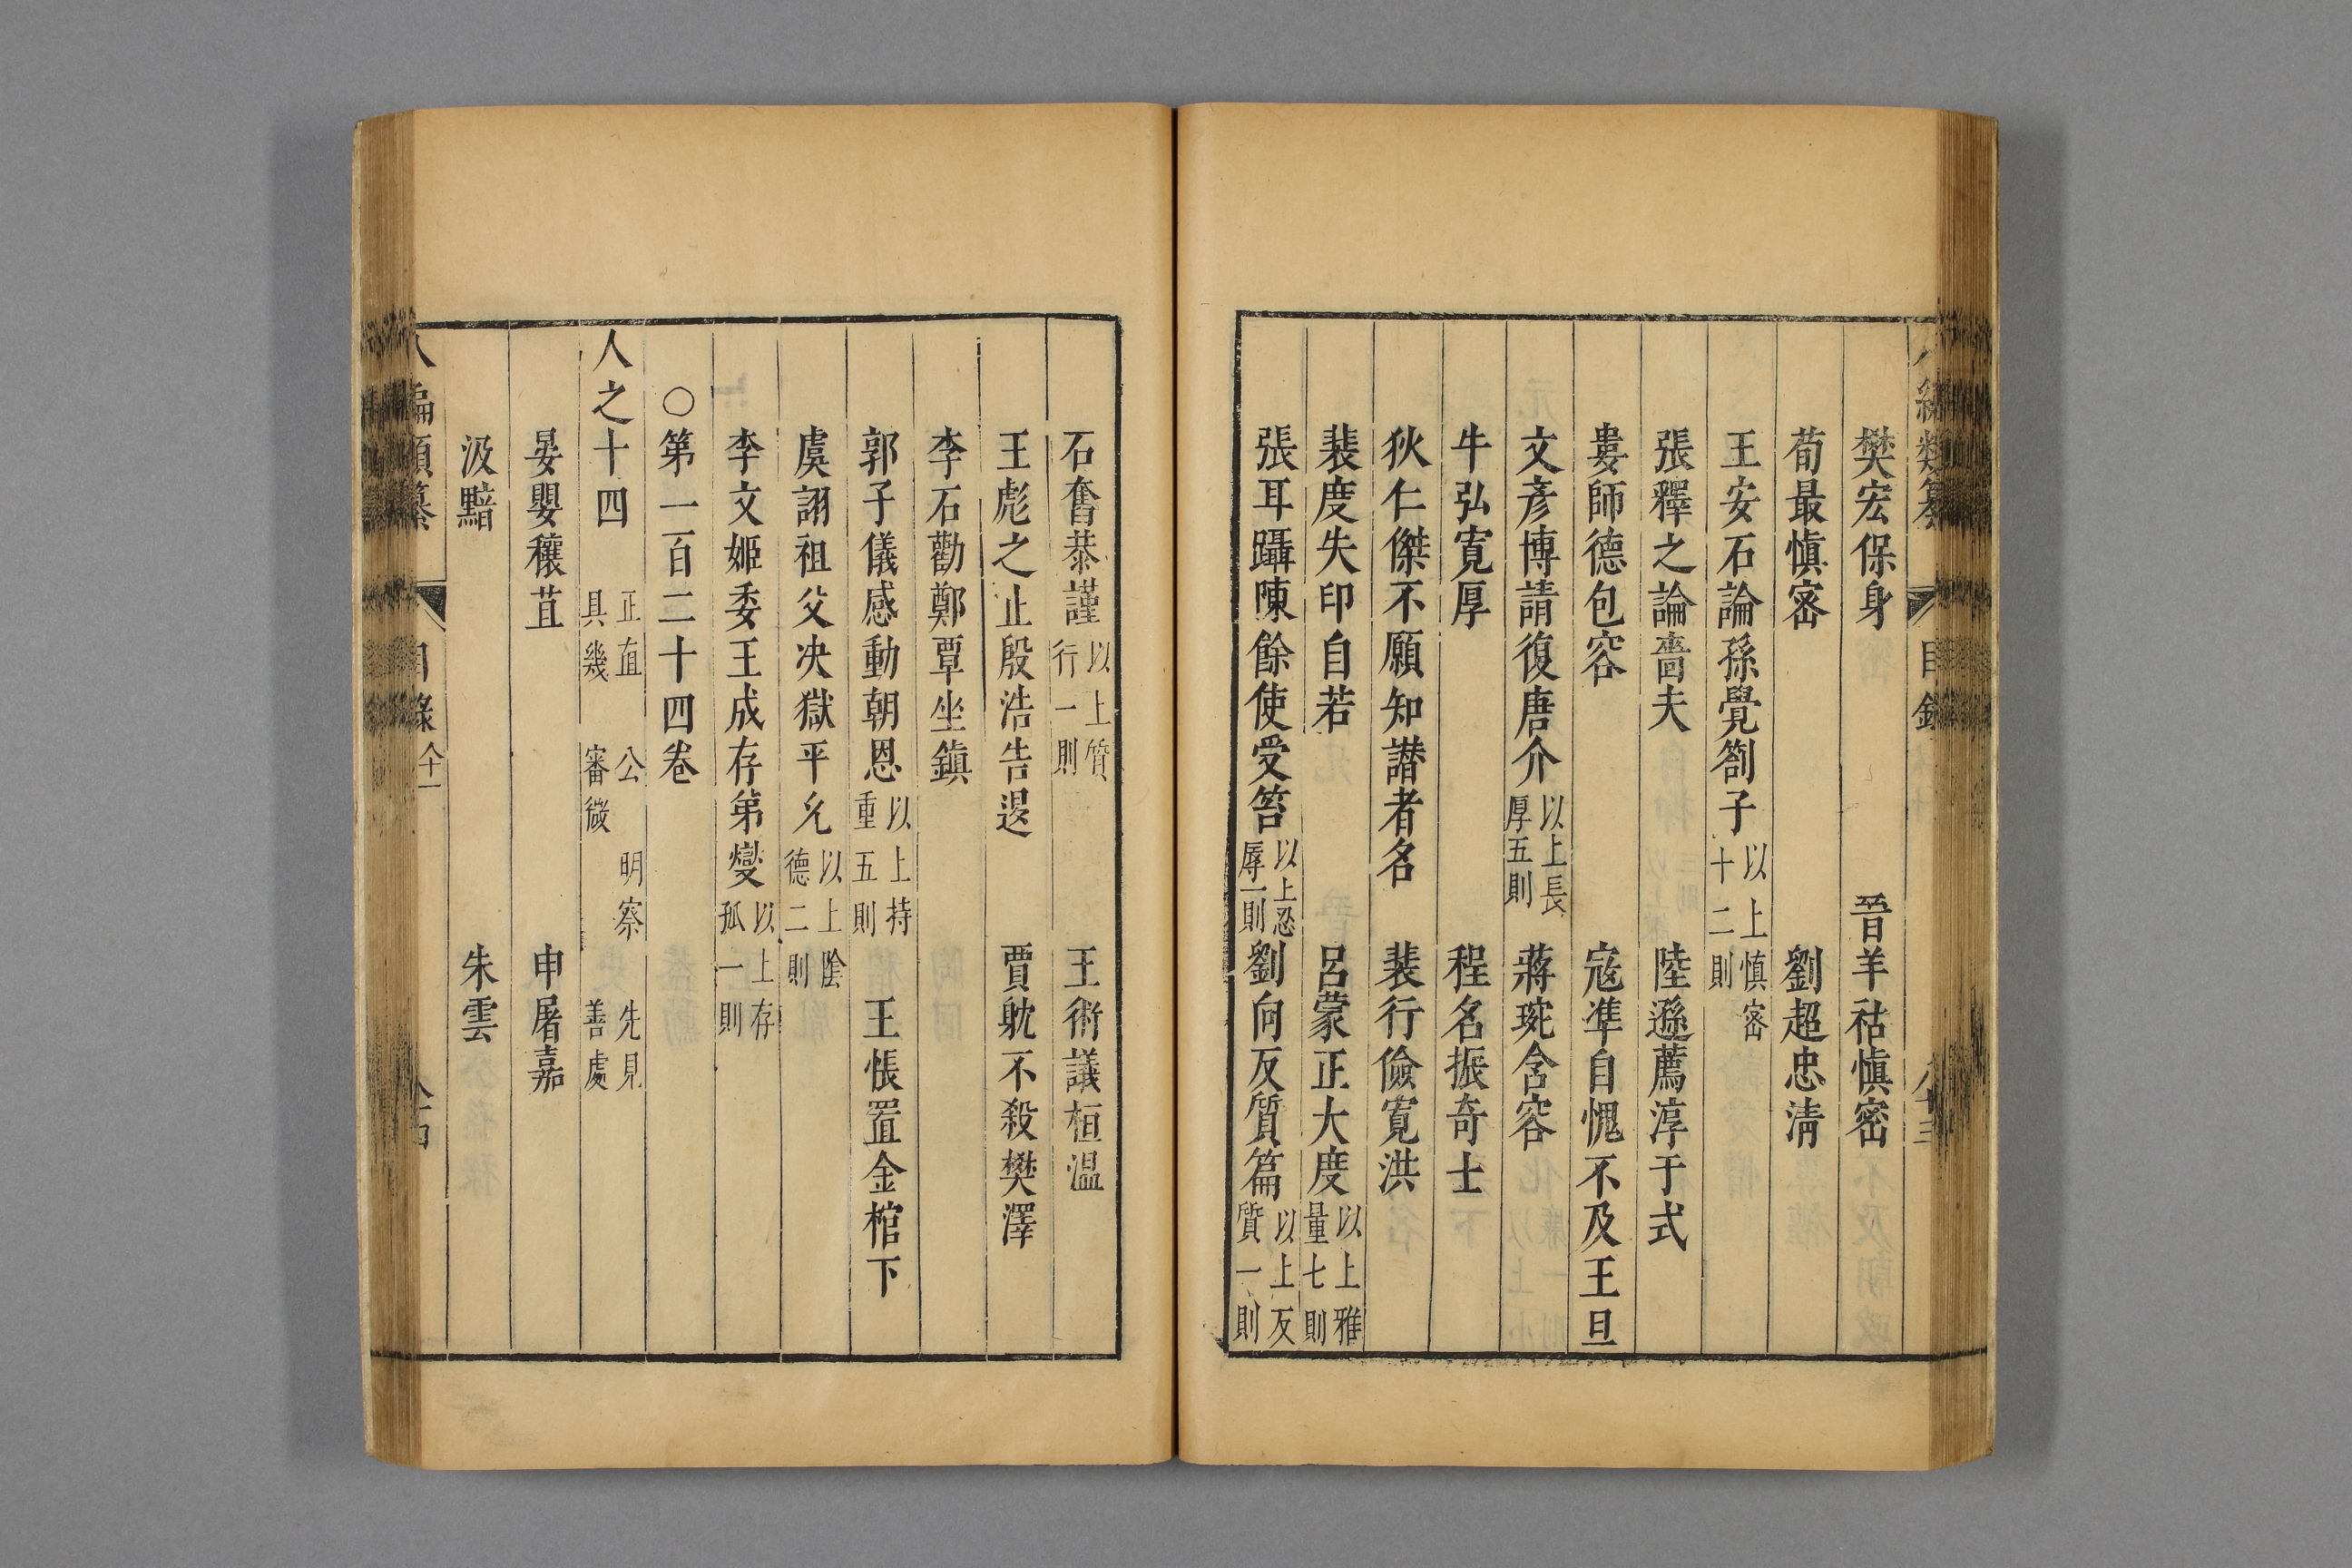 樊宏保身 晉羊祜慎密
荀最慎密 劉超忠淸
王安石論孫覺劄子 以上慎密十二則
張釋之論嗇夫 陸遜薦淳于式
婁師德包容 寇準自愧不及王旦
文彥博請復唐介 以上長厚五則 蔣琬含容
牛弘寬厚 程名振奇士
狄仁傑不願知譖者名 裴行儉寬洪
裴度失印自若 呂蒙正大度 以上雅量七則
張耳躡陳餘使受笞 以上忍辱一則 劉向反質篇 以上反質一則
石奮恭謹 以上質行一則 王術議桓溫
王彪之止殷浩告退 賈躭不殺樊澤
李石勸鄭覃坐鎮
郭子儀感動朝恩 以上持重五則 王悵置金棺下
虞詡祖父决獄平允 以上陰德二則
李文姬委王成存弟燮 以上存孤一則
○第一百二十四卷
人之十四 正直 公 明察 先見 具幾 審微 善處
晏嬰穰苴 申屠嘉
汲黯 朱雲